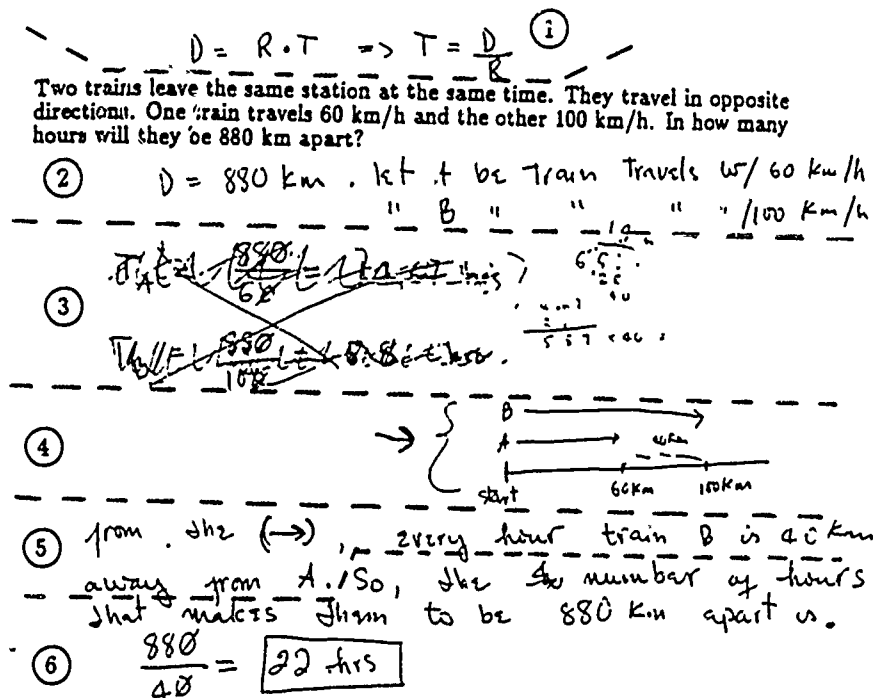 ①
D = R · T => T = D/R
Two trains leave the same station at the same time. They travel in opposite
directions. One train travels 60 km/h and the other 100 km/h. In how many
hours will they be 880 km apart?
② D = 880 km . let A be Train Travels w/ 60 km/h
" B " " " "/100 Km/h
③
880
60
880
100
④ → { B
A 40Km
start 60Km 100Km
⑤ from the (→), every hour train B is 40 Km
away from A. So, the number of hours
that makes them to be 880 Km apart is.
⑥ 880/40 = 22 hrs